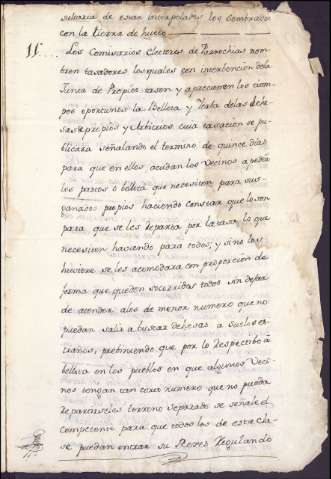 situaria de estar interpolados los sombrados
con la tierra de hueco
11.. Los Comisarios Electores de Parrochias nom
bren tasadores los quales con intervencion dela
Junta de Propios tasen y aprecien en los tiem
pos oportunos la Bellota y Yerba delas dehe
sas de propios y Arbitrios cuia tasacion se pu
blicara señalando el termino de quince dias
para que en ellos acudan los Vecinos a pedir
los pastos o bellota que necesiten para sus
ganados propios haciendo constar que lo son
para que se les reparta por la tasa lo que
necesiten haviendo para todos; y si no los
huviere se les acomodara con proporcion de
forma que queden socorridos todos sin dejar
de atender alos de menor numero que no
puedan salir a buscar dehesas a suelos es
traños, previniendo que por lo respectibo a
bellota en los pueblos en que algunos Veci
nos tengan tan corto numero que no pueda
repartirseles terreno separado se señale el
competente para que todos los de esta cla
se puedan entrar su Reses Regulando